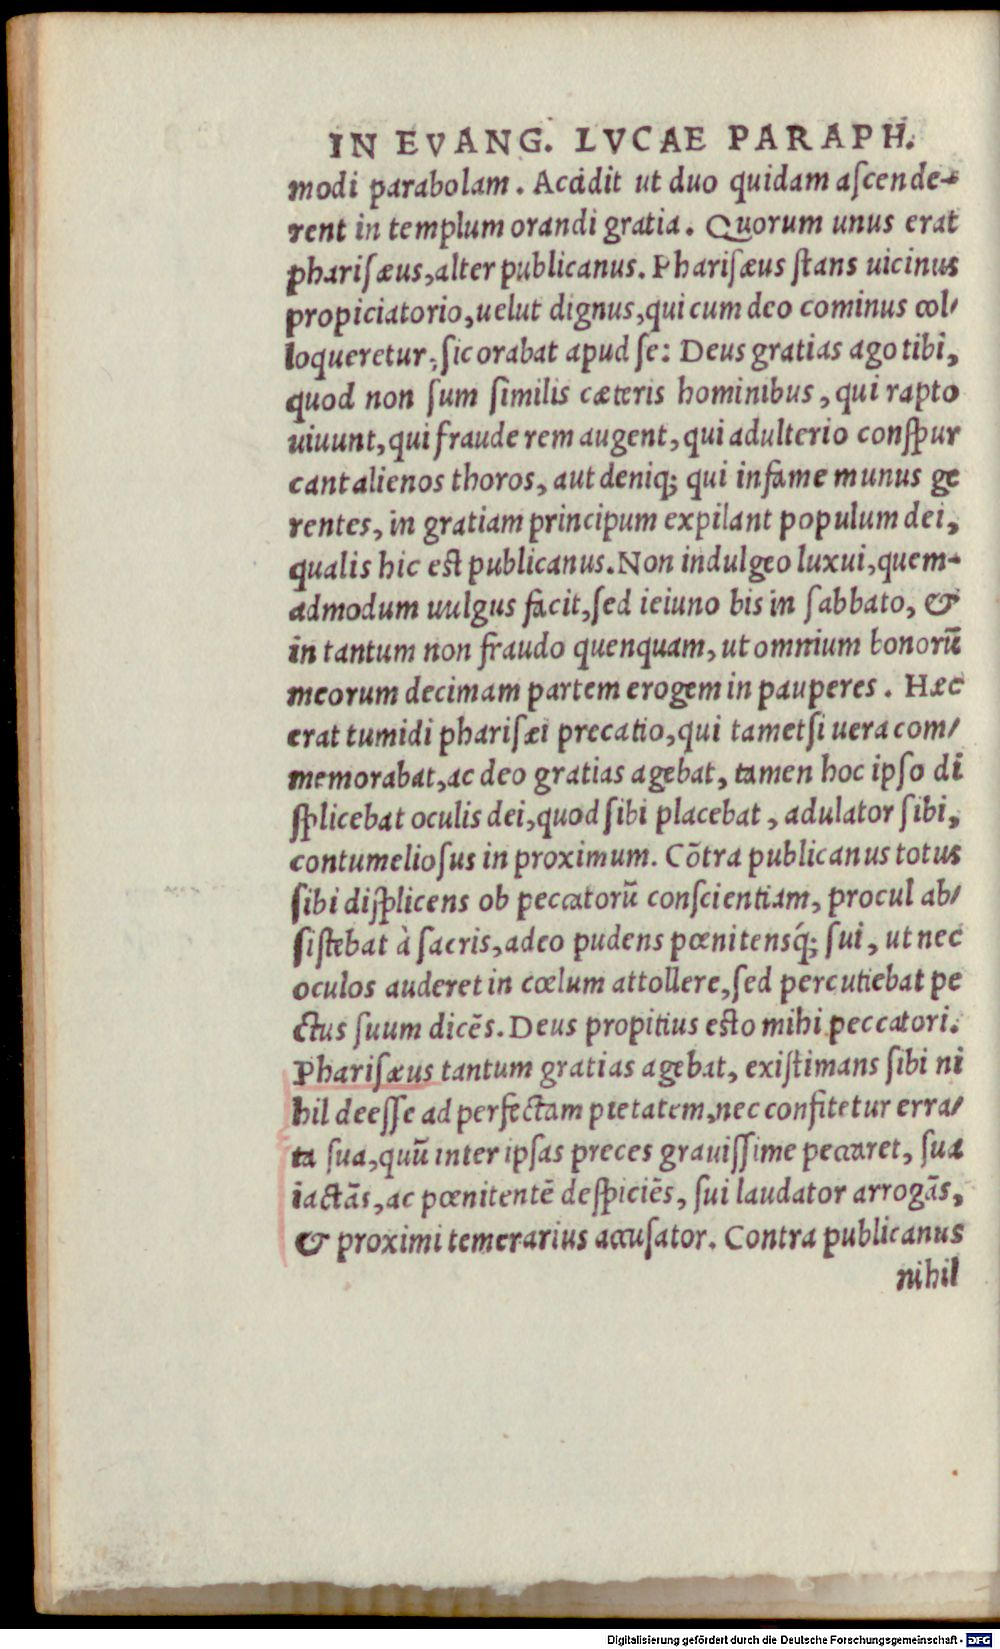 IN EVANG. LVCAE PARAPH.
modi parabolam. Accidit ut duo quidam aſcende-
rent in templum orandi gratia. Quorum unus erat
phariſæus, alter publicanus. Phariſæus ſtans uicinus
propiciatorio, uelut dignus, qui cum deo cominus col/
loqueretur, ſic orabat apud ſe: Deus gratias ago tibi,
quod non ſum ſimilis cæteris hominibus, qui rapto
uiuunt, qui fraude rem augent, qui adulterio conſpur
cant alienos thoros, aut deniq; qui infame munus ge
rentes, in gratiam principum expilant populum dei,
qualis hic eſt publicanus. Non indulgeo luxui, quem-
admodum uulgus facit, ſed ieiuno bis in ſabbato, &
in tantum non fraudo quenquam, ut omnium bonorū
meorum decimam partem erogem in pauperes. Hæc
erat tumidi phariſæi precatio, qui tametſi uera com/
memorabat, ac deo gratias agebat, tamen hoc ipſo di
ſplicebat oculis dei, quod ſibi placebat, adulator ſibi,
contumelioſus in proximum. Cōtra publicanus totus
ſibi diſplicens ob peccatorū conſcientiam, procul ab/
ſiſtebat à ſacris, adeo pudens pœnitensq́; ſui, ut nec
oculos auderet in cœlum attollere, ſed percutiebat pe
ctus ſuum dicēs. Deus propitius eſto mihi peccatori.
Phariſæus tantum gratias agebat, exiſtimans ſibi ni
hil deeſſe ad perfectam pietatem, nec confitetur erra/
ta ſua, quū inter ipſas preces grauiſſime peccaret, ſua
iactās, ac pœnitentē deſpiciēs, ſui laudator arrogās,
& proximi temerarius accuſator. Contra publicanus
nihil
Digitalisierung gefördert durch die Deutsche Forschungsgemeinschaft - DFG